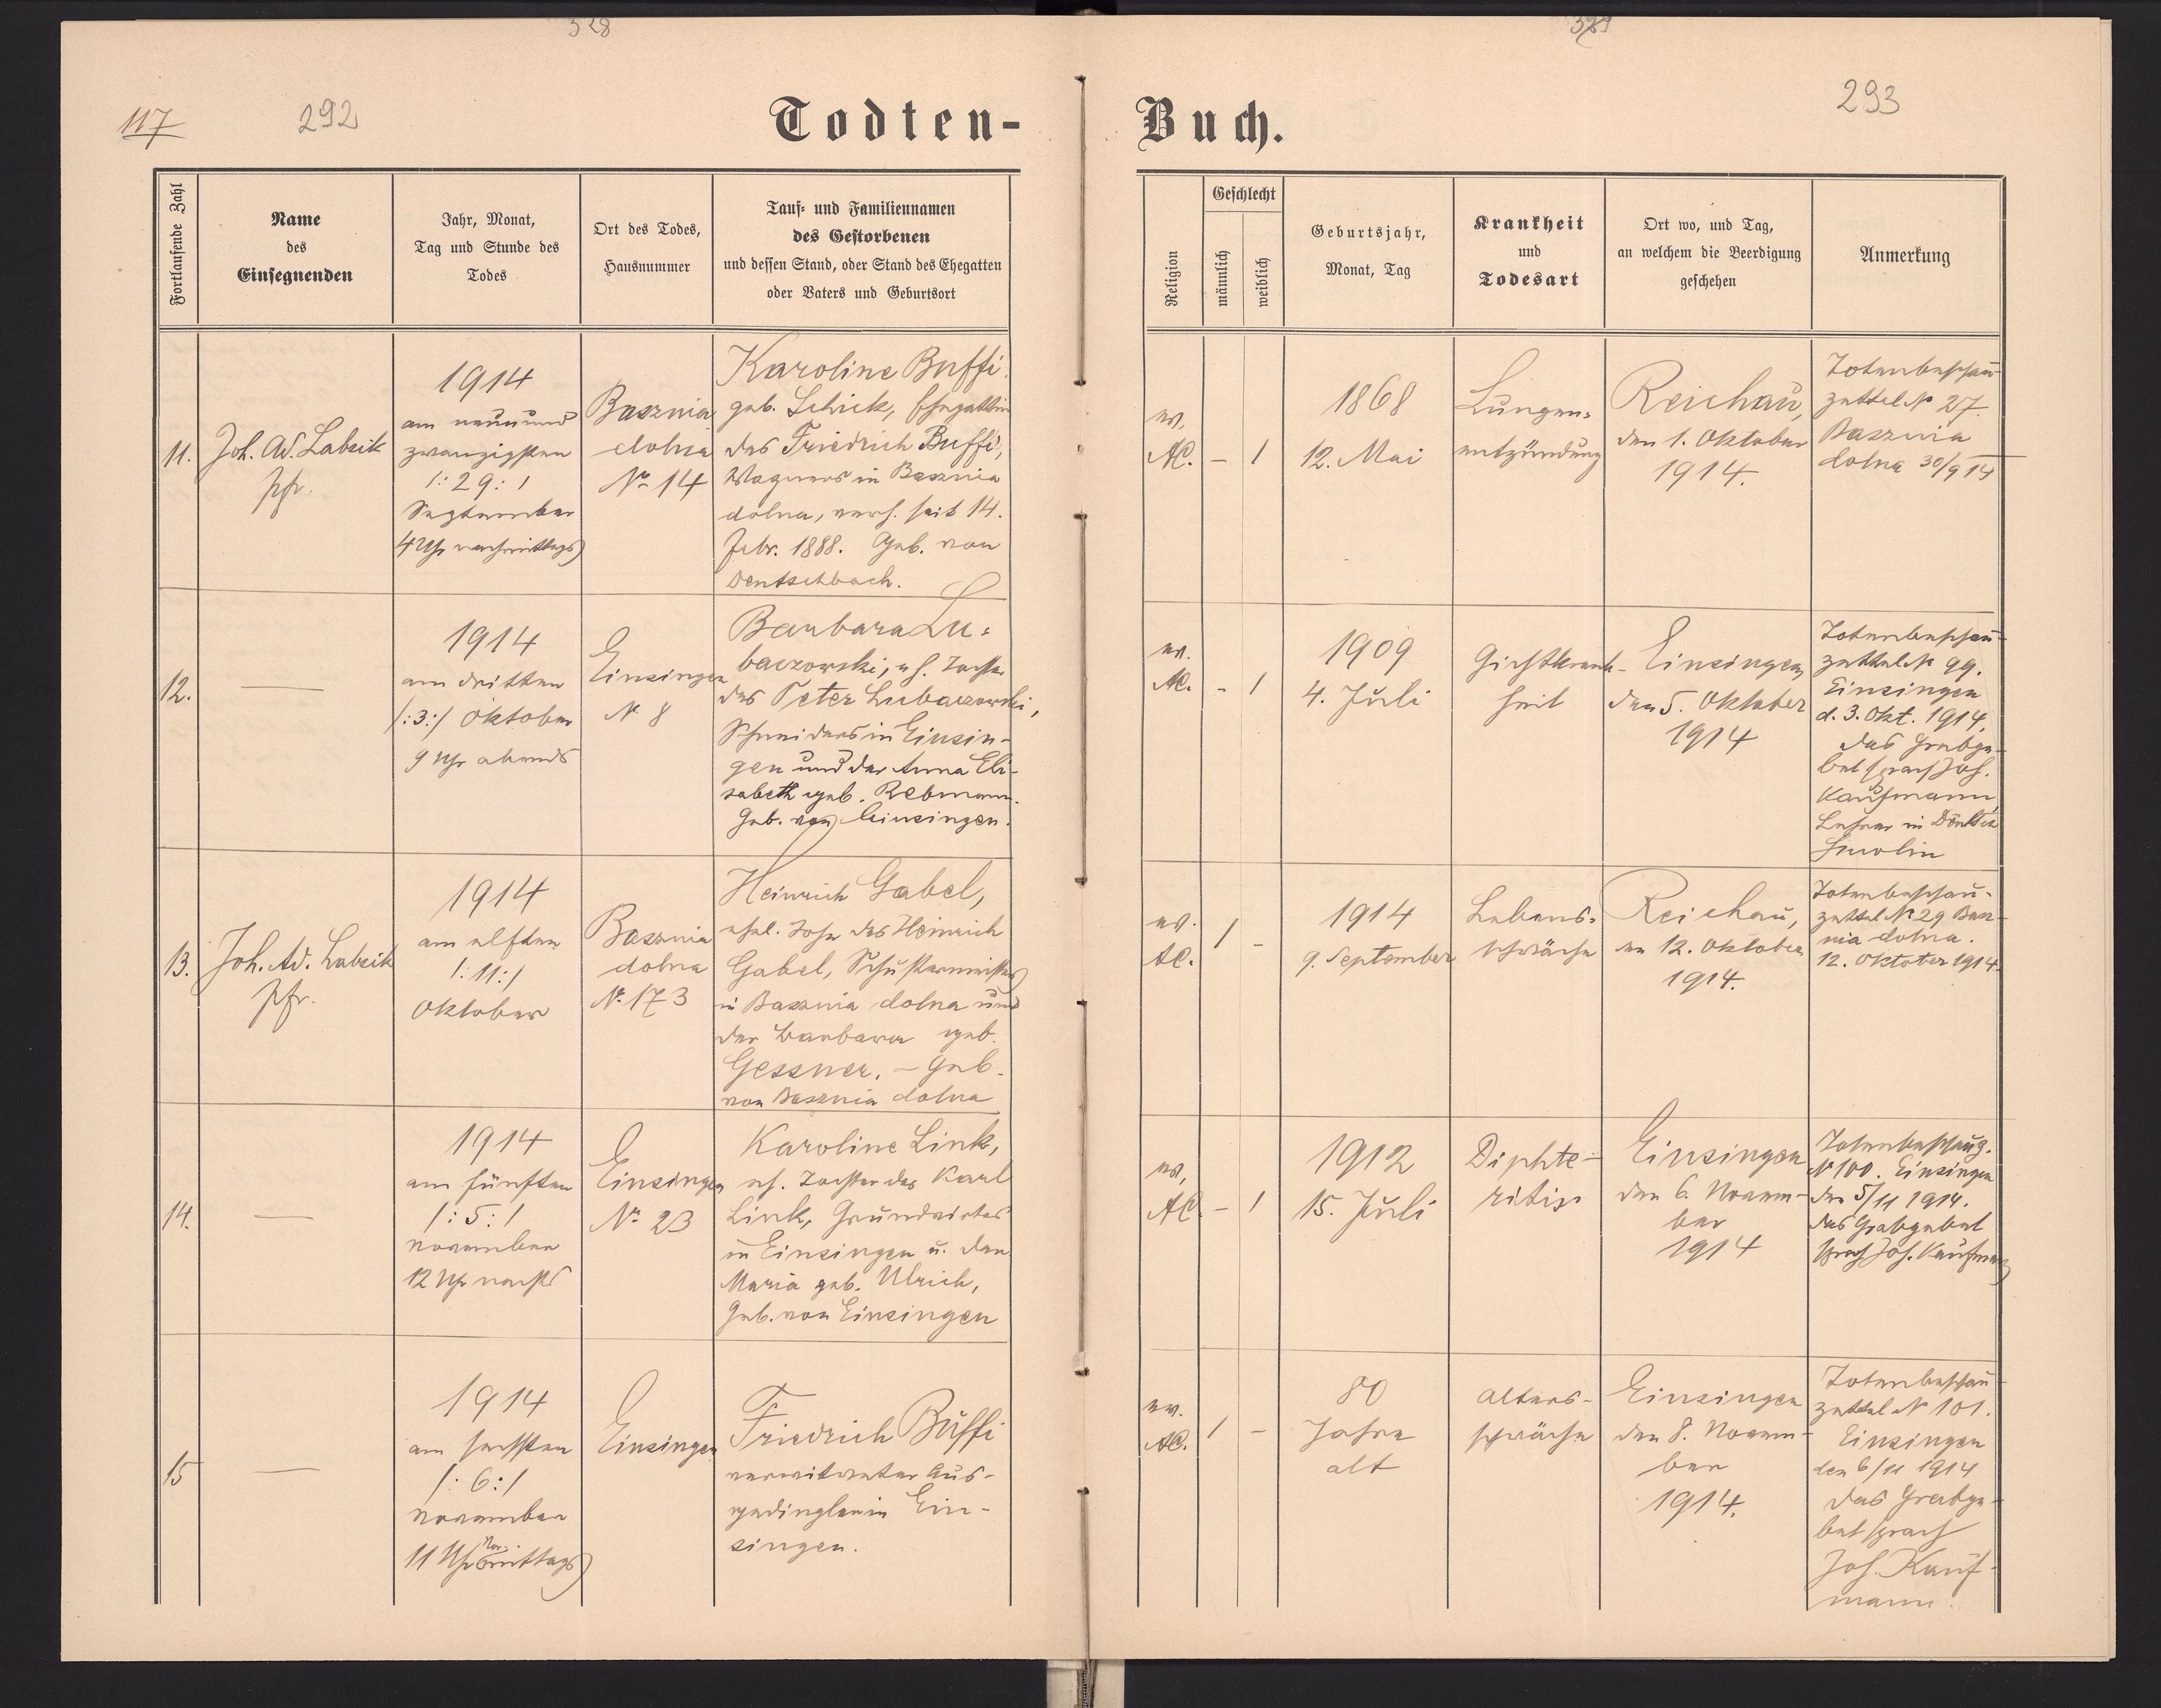 328
329
117
292
293
Todten-
Buch.
Fortlaufende Zahl
Name
des
Einsegnenden
Jahr, Monat,
Tag und Stunde des
Todes
Ort des Todes,
Hausnummer
Tauf- und Familiennamen
des Gestorbenen
und dessen Stand, oder Stand des Ehegatten
oder Vaters und Geburtsort
Religion
Geschlecht
männlich
weiblich
Geburtsjahr,
Monat, Tag
Krankheit
und
Todesart
Ort wo, und Tag,
an welchem die Beerdigung
geschehen
Anmerkung
11.
Joh. Ad. Labsik
pfr.
1914
am neunund
zwanzigsten
/: 29: /
September
4 Uhr nachmittags)
Basznia
dolna
No 14
Karoline Buffi
geb. Schick, Ehegattin
des Friedrich Buffi,
Wagners in Basznia
dolna, verh. seit 14.
Febr. 1888. Geb. von
Deutschbach.
ev.
AC.
–
1
1868
12. Mai
Lungen=
entzündung
Reichau,
den 1. Oktober
1914.
Totenbeschau-
zettel No 27.
Basznia
dolna 30/9 14
12.
—
1914
am dritten
/:3:/ Oktober
9 Uhr abends
Einsingen
N. 8
Barbara Lu=
baczowski, eh. Tochter
des Peter Lubaczowski,
Schneiders in Einsin-
gen und der Anna Eli-
sabeth geb. Rebmann.
Geb. von Einsingen.
ev.
AC.
-
1
1909
4. Juli
Gichtkrank-
heit
Einsingen
den 5. Oktober
1914
Totenbeschau-
zettel No 99.
Einsingen
d. 3. Okt. 1914.
das Grabge-
bet sprach Joh.
Kaufmann,
Lehrer in Deutsch
Smolin
13.
Joh. Ad. Labsik
pfr.
1914
am elften
/: 11:/
Oktober
Basznia
dolna
N. 173
Heinrich Gabel,
ehel. Sohn des Heinrich
Gabel, Schustermeisters
in Basznia dolna und
der Barbara geb.
Gessner. – Geb.
von Basznia dolna
ev.
AC.
1
–
1914
9. September
Lebens=
schwäche
Reichau,
den 12. Oktober
1914.
Totenbeschau-
zettel No 29 Basz-
nia dolna.
12. Oktober 1914
14.
—
1914
am fünften
/: 5: /
November
12 Uhr nachts
Einsingen
No 23
Karoline Link,
eh. Tochter des Karl
Link, Grundwirtes
in Einsingen u. der
Maria geb. Ulrich,
Geb. von Einsingen
ev.
AC.
–
1
1912
15. Juli
Diphte-
ritis
Einsingen
den 6. Novem-
ber
1914
Totenbeschauz.
No 100. Einsingen
den 5/11 1914.
das Grabgebet
sprach Joh. Kaufmann
15
—
1914
am sechsten
/: 6: /
November
11 Uhr Vor-
mittags)
Einsingen
Friedrich Buffi
verwitweter Aus-
gedingler in Ein-
singen.
ev.
AC.
1
–
80
Jahre
alt
Alters-
schwäche
Einsingen
den 8. Novem-
ber
1914.
Totenbeschau-
zettel No 101.
Einsingen
den 6/11 1914
das Grabge-
bet sprach
Joh. Kauf-
mann.